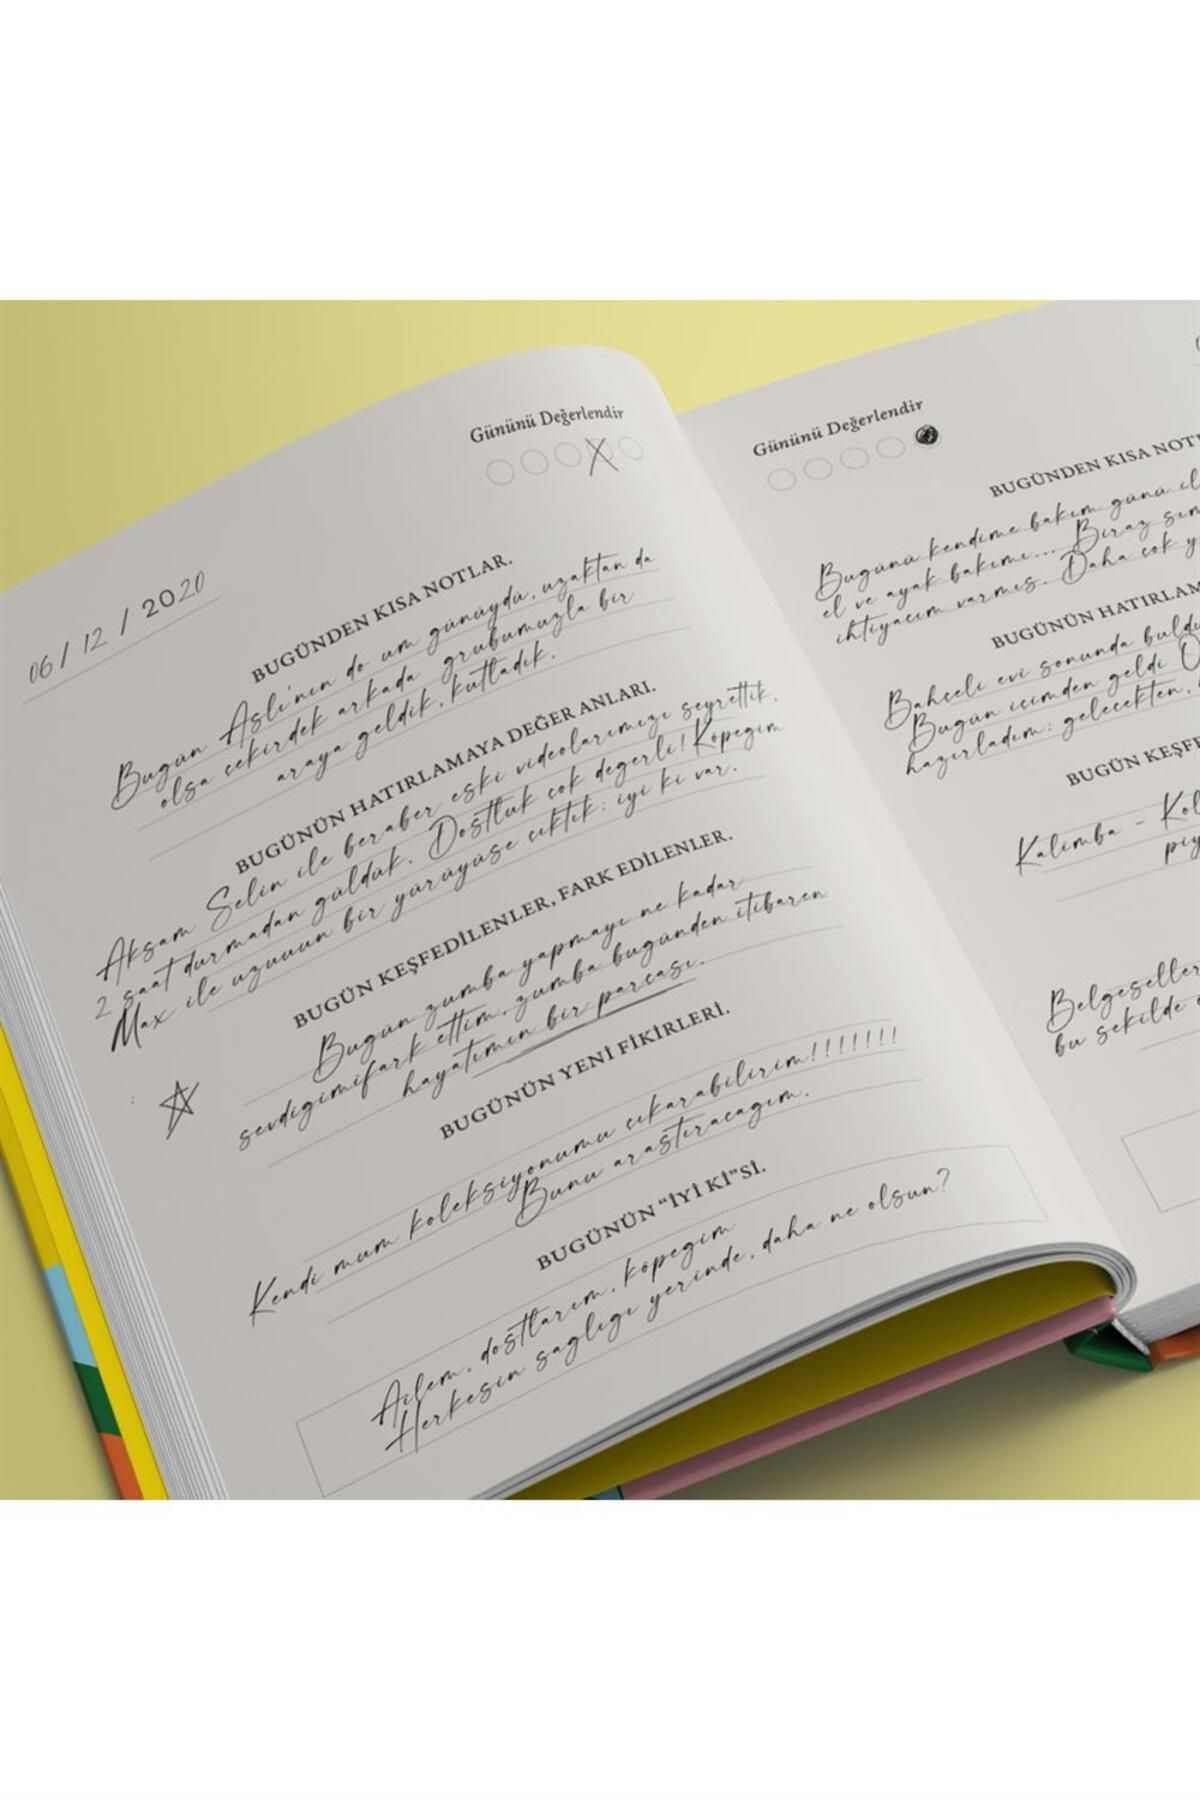 06 / 12 / 2020
Gününü Değerlendir
BUGÜNDEN KISA NOTLAR.
Bugün Aslı'nın do um günüydü, uzaktan da
olsa cekirdek arkada grubumuzla bir
araya geldik, kutladık.
BUGÜNÜN HATIRLAMAYA DEĞER ANLARI.
Aksam Selin ile beraber eski videolarımızı seyrettik,
2 saat durmadan güldük. Dostluk cok degerli! Köpegim
Max ile uzuuun bir yürüyüse cıktık: iyi ki var.
BUGÜN KEŞFEDİLENLER, FARK EDİLENLER.
Bugün zumba yapmayı ne kadar
sevdigimifark ettim, zumba bugünden itibaren
hayatımın bir parcası.
BUGÜNÜN YENİ FİKİRLERİ.
Kendi mum koleksiyonumu cıkarabilirim!!!!!!!
Bunu arastıracagım.
BUGÜNÜN “İYİ Kİ”Sİ.
Ailem, dostlarım, köpegim
Herkesin saglıgı yerinde, daha ne olsun?
Gününü Değerlendir
BUGÜNDEN KISA NOT
Bugünü kendime bakım günü il
el ve ayak bakımı... Biraz sım
ihtiyacım varmıs. Daha cok y
BUGÜNÜN HATIRLAM
Bahceli evi sonunda buldu
Bugün icimden geldi
hazırladım: gelecekten,
BUGÜN KEŞFE
Kalimba - Kol
piy
Belgeseller
bu sekilde